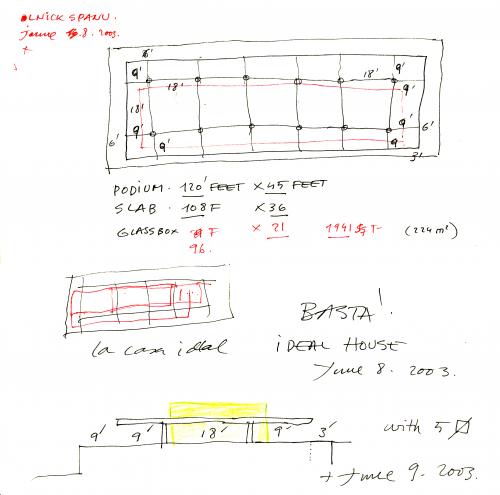 OLNICK SPANU.
June 8. 2003.
+
6'
9' 18' 18' 9'
9'
18'
9'
6' 9 9' 9' 6'
9
3'
PODIUM. 120' FEET X 45 FEET
SLAB. 108 F X 36
GLASSBOX F X 21 1941 SFT- (224 m²)
96.
BASTA!
la casa ideal IDEAL HOUSE
June 8. 2003.
9' 9' 18' 9' 3' with 5
+ June 9. 2003.